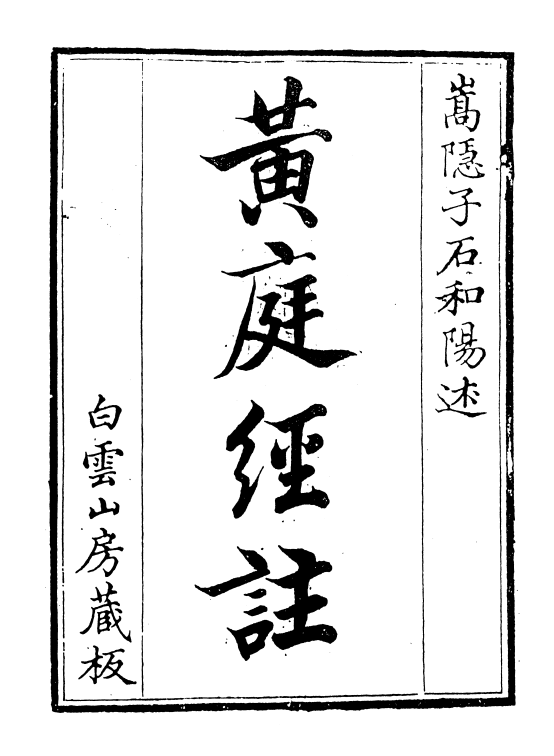 嵩隱子石和陽述
黃庭經註
白雲山房藏板